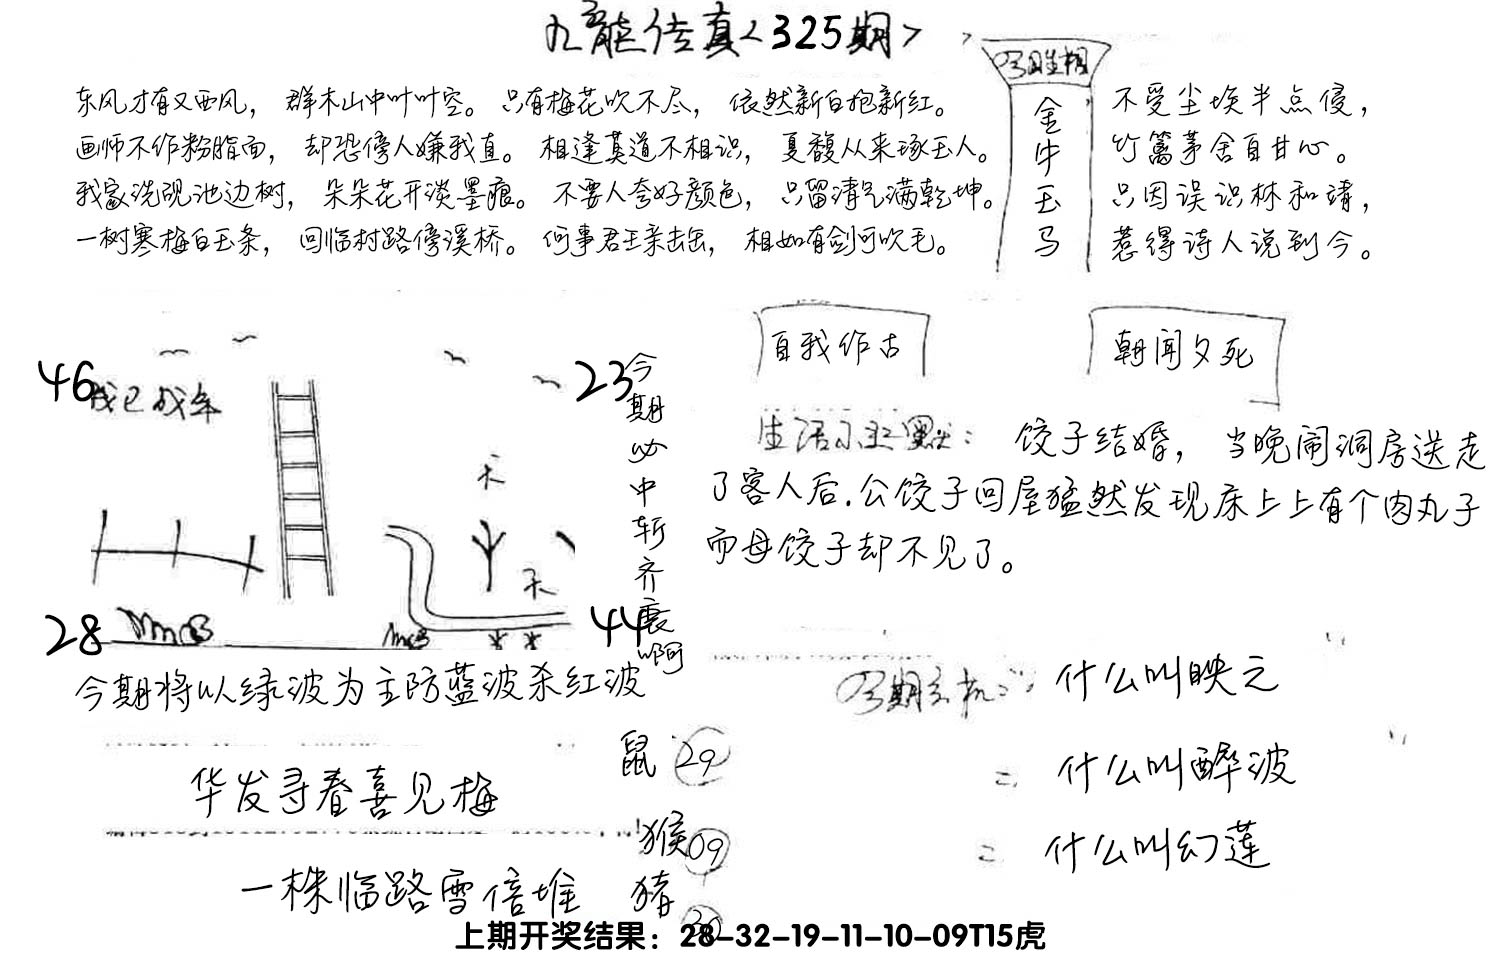 九龍传真<325期>
东风才有又西风，群木山中叶叶空。只有梅花吹不尽，依然新白抱新红。
画师不作粉脂面，却恐傍人嫌我直。相逢莫道不相识，夏馥从来琢玉人。
我家洗砚池边树，朵朵花开淡墨痕。不要人夸好颜色，只留清气满乾坤。
一树寒梅白玉条，回临村路傍溪桥。何事君王亲击缶，相如有剑可吹毛。
今期生相
金牛玉马
不受尘埃半点侵，
竹篱茅舍自甘心。
只因误识林和靖，
惹得诗人说到今。
46
23
天
天
28
44
今期必中斩齐襄啊
今期将以绿波为主防蓝波杀红波
自我作古
朝闻夕死
生活小幽默：饺子结婚，当晚闹洞房送走
了客人后.公饺子回屋猛然发现床上上有个肉丸子
而母饺子却不见了。
今期玄机
什么叫映之
二 什么叫醉波
什么叫幻莲
华发寻春喜见梅
一株临路雪倍堆
鼠 29
猴 09
猪 30
上期开奖结果：28-32-19-11-10-09T15虎